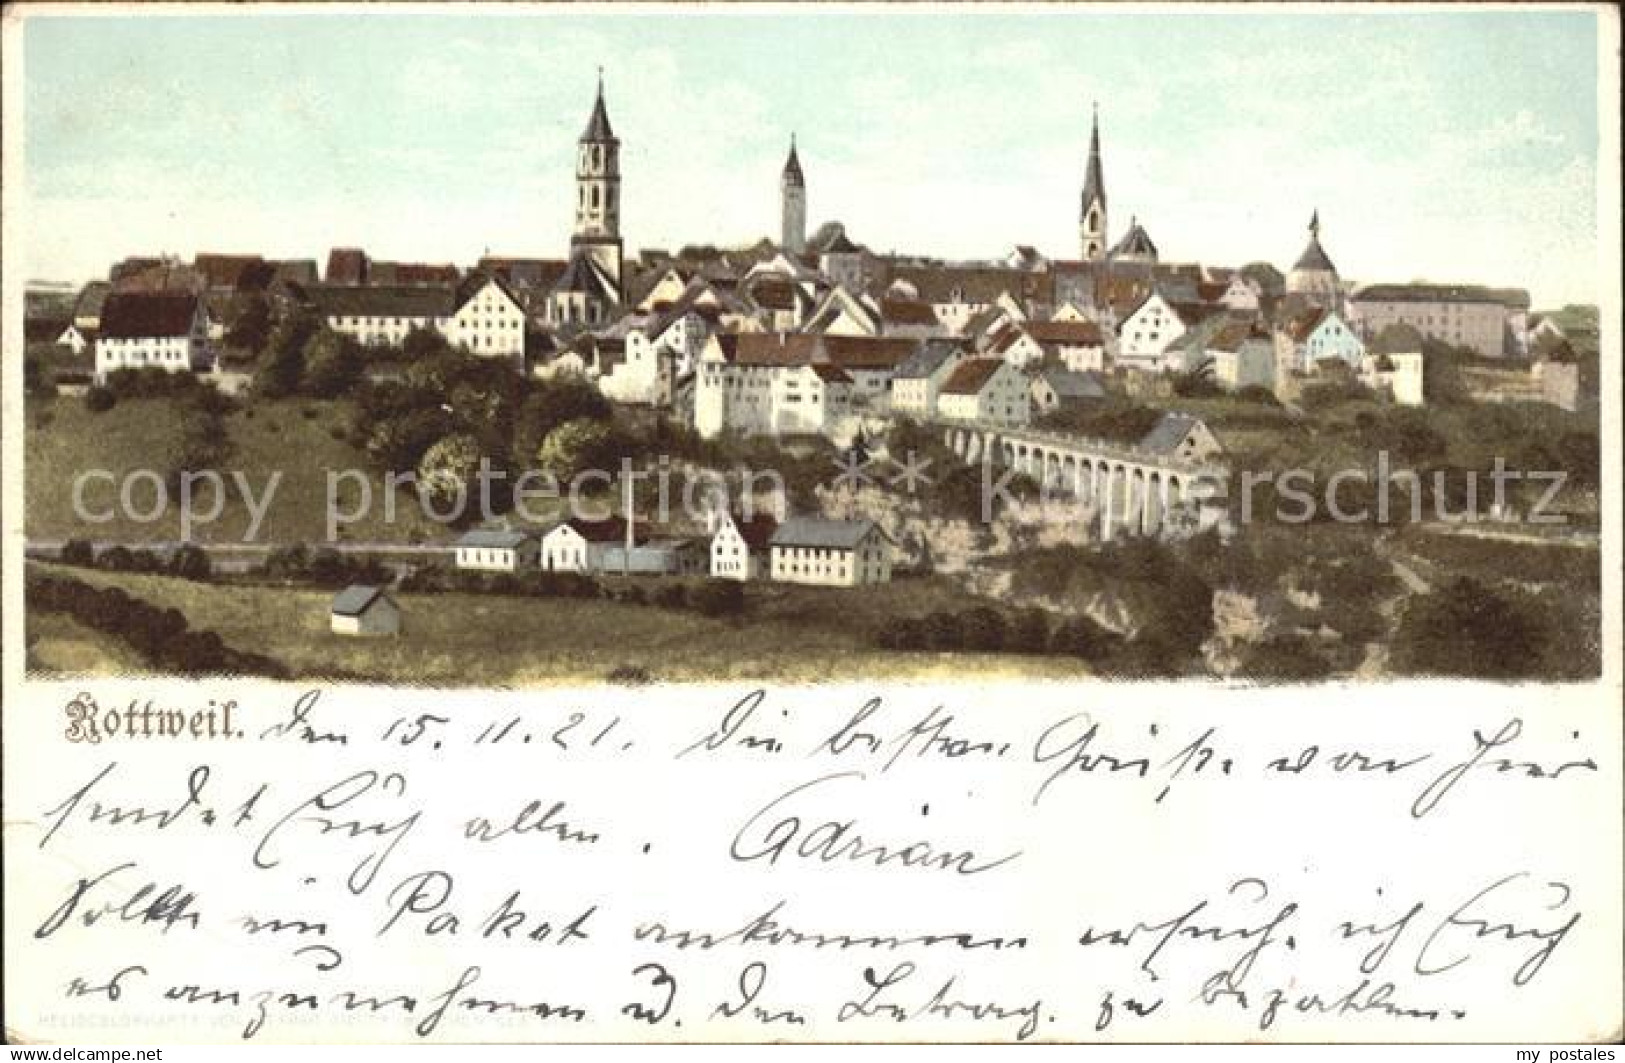 copy protection ** kopierschutz
Rottweil. den 15. 11. 21. Die besten Grüße von hier
sendet Euch allen. Adrian
Sollte ein Paket ankommen ersuche ich Euch
es anzunehmen u. den Betrag. zu bezahlen.
HELIOCOLORKARTE VON
https://www.delcampe.net
my_postales